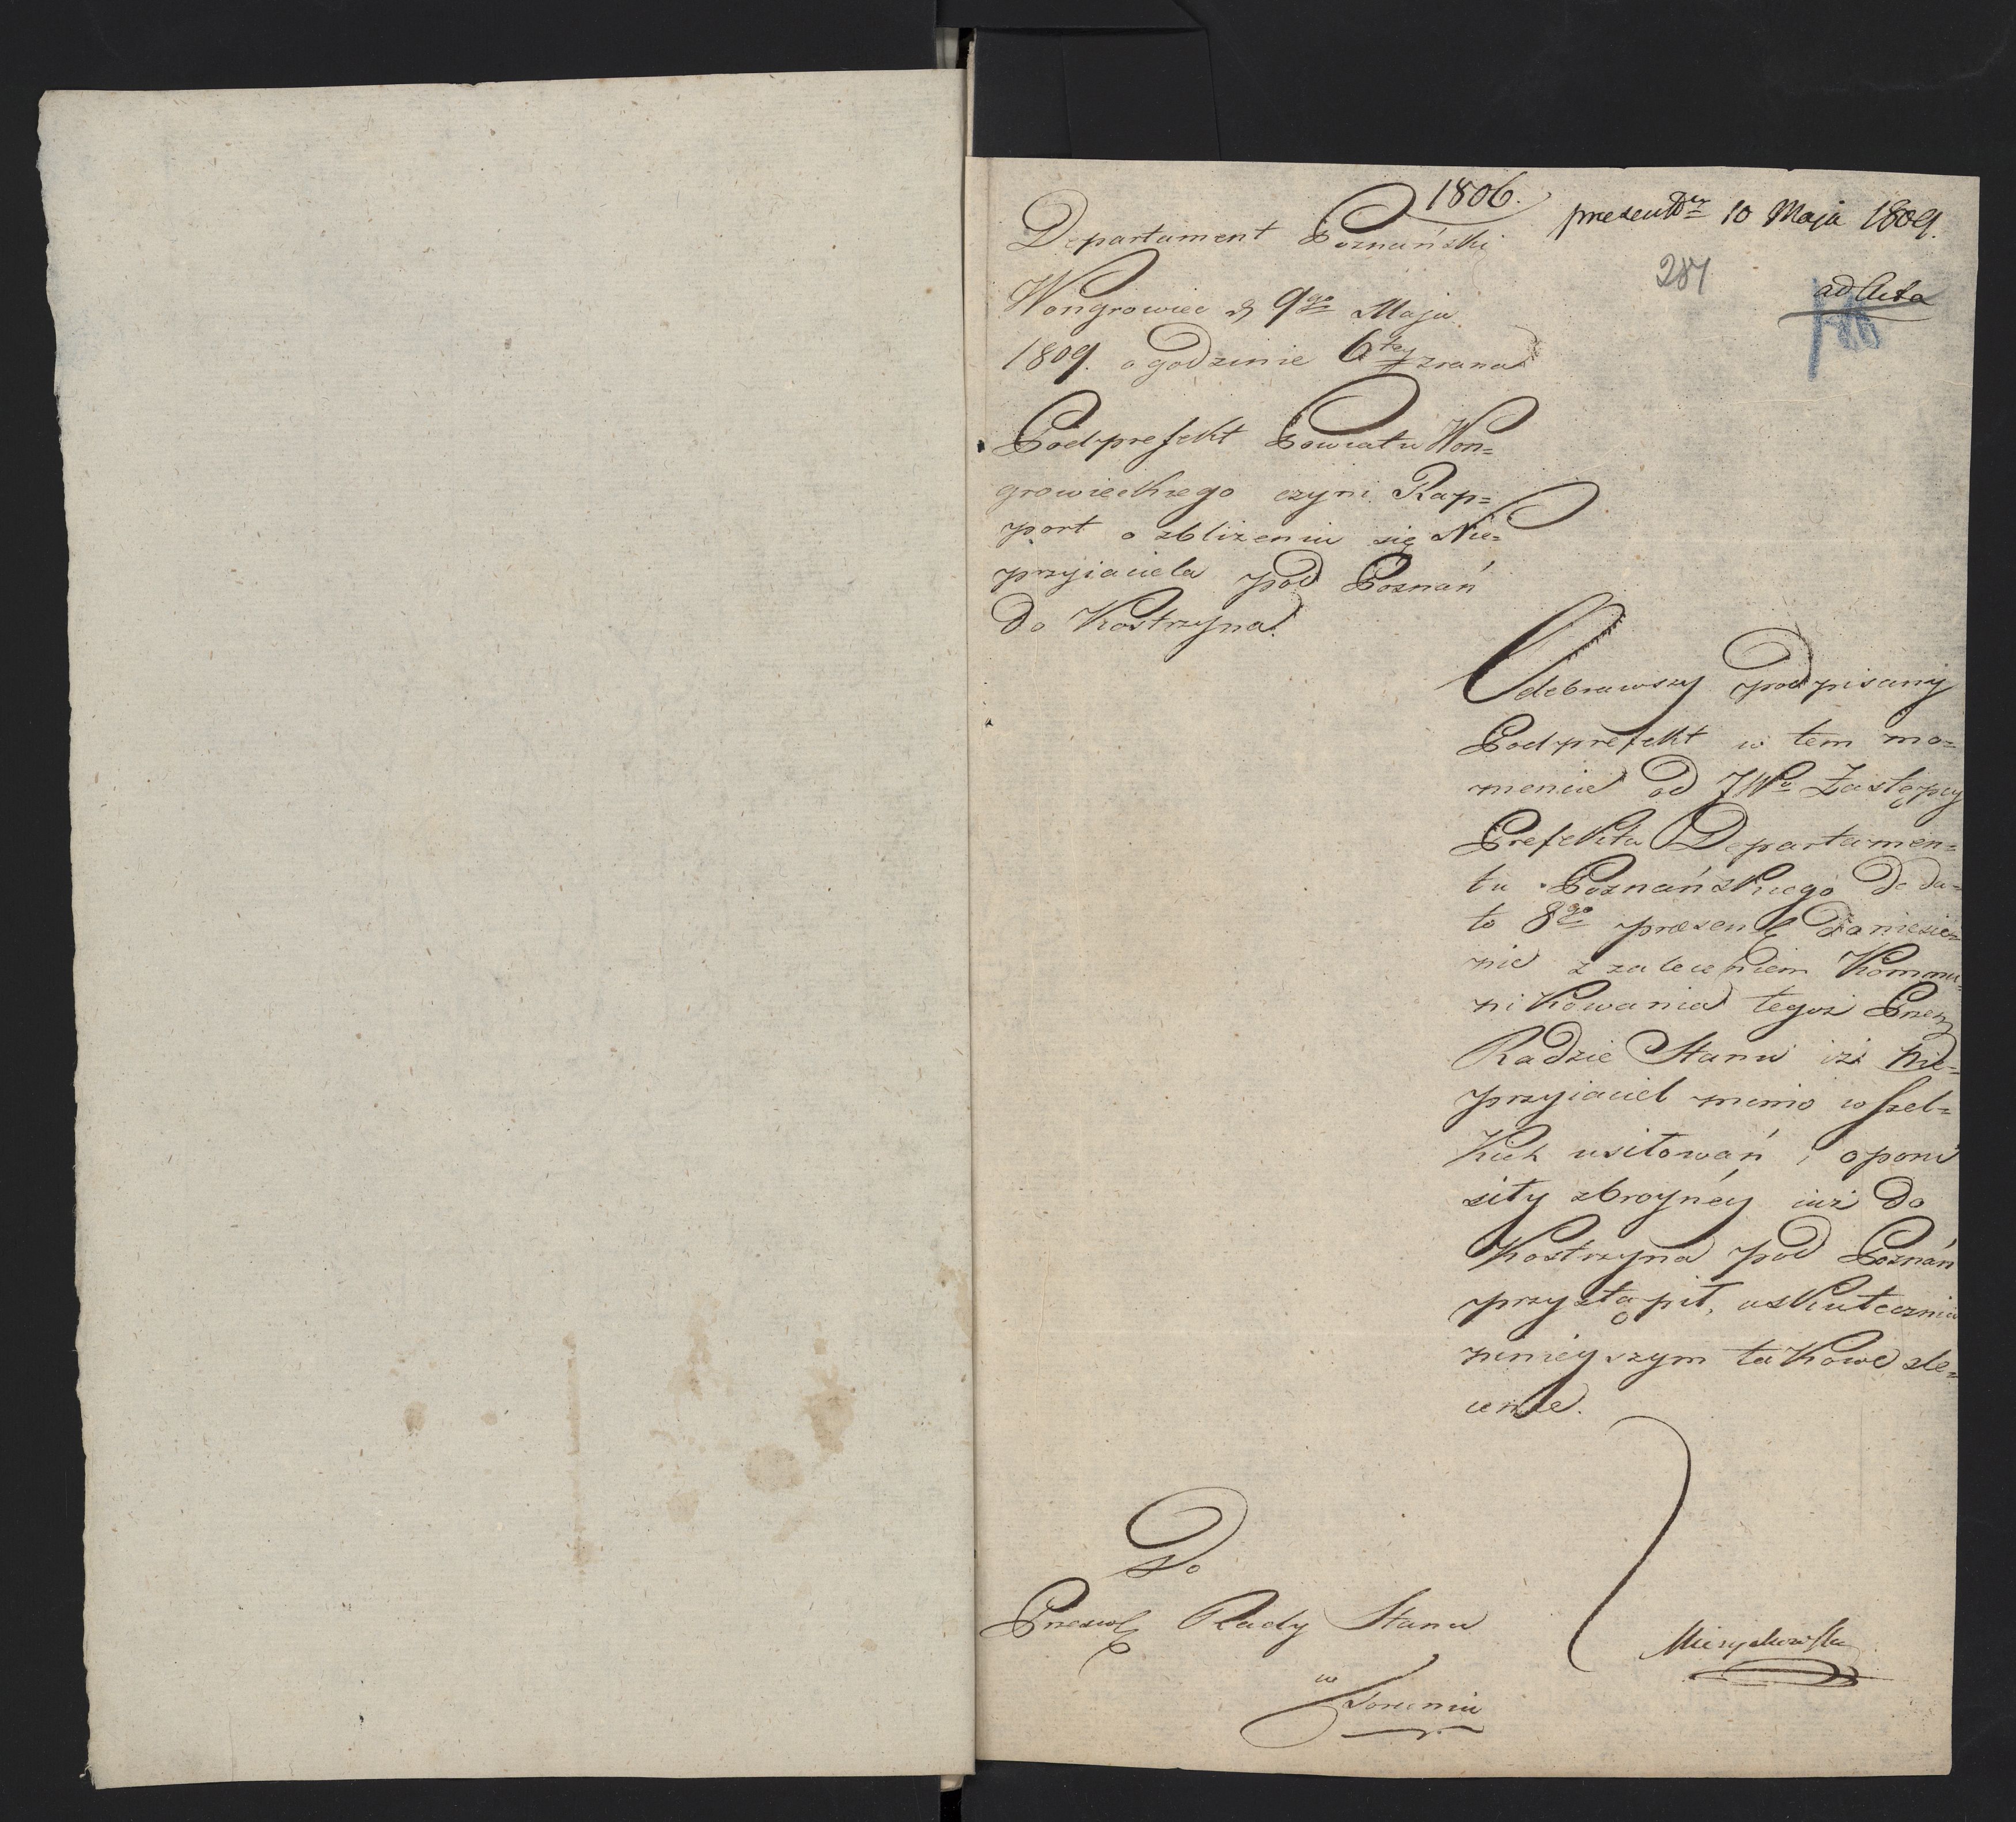 1806.
praesentt 10 Maja 1809.
Departament Poznański
287
ad Acta
Wongrowiec d 9go Maja
1809. o godzinie 6tey zrana
Podprefekt Powiatu Won=
growieckiego czyni Rap=
port o zbliżeniu się Nie=
przyiaciela pod Poznań
do Kostrzyna.
Odebrawszy podpisany
Podprefekt w tem mo=
mencie od JWo Zastępcy
Prefekta Departamen=
tu Poznańskiego de da=
to 8go praesent doniesie=
nie z zaleceniem Kommu=
nikowania tegoż Przew
Radzie Stanu iż Nie=
przyiaciel mimo wszel=
kich usiłowań i oporu
siły zbroyney iuż do
Kostrzyna pod Poznań
przystąpił, uskutecznia
ninieyszym takowe zle=
cenie.
Do
Przesw Rady Stanu
w Toruniu